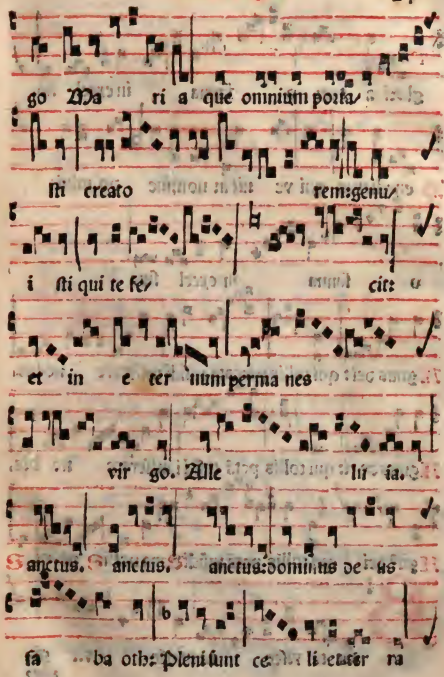 go Ma ri a que omnium porta/
sti creato rem:genu/
i sti qui te fe/ cit:
et in e ter num perma nes
vir go. Alle lu ia.
Sanctus. Sanctus. anctus:dominus de us
sa ba oth: Pleni sunt ce li et ter ra